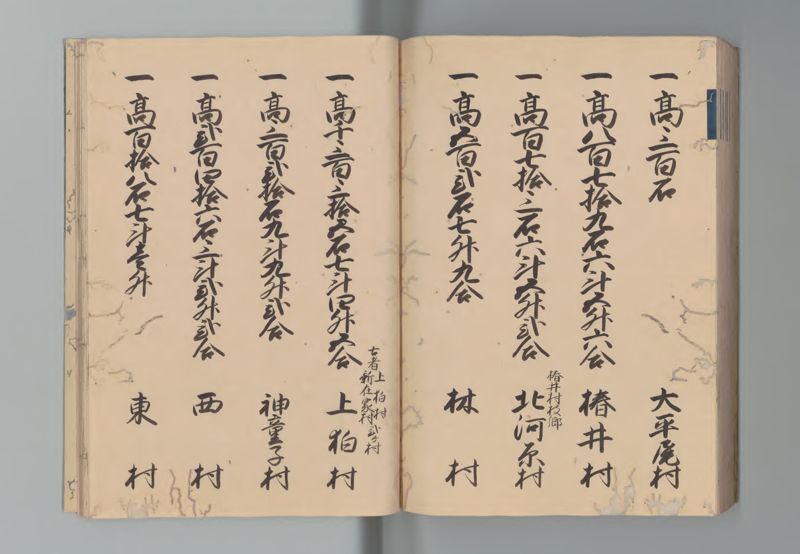 一高三百石 大平尾村
一高八百七拾九石六斗五升六合 椿井村
椿井村枝郷
一高百七拾三石六斗五升弐合 北河原村
一高五百弐石七升九合 林村
古者上狛村
新在家村弐ヶ村
一高千三百三拾五石七斗四升五合 上狛村
一高三百弐拾石九斗九升弐合 神童子村
一高弐百四拾六石三斗弐升弐合 西村
一高百拾八石七斗壱升 東村